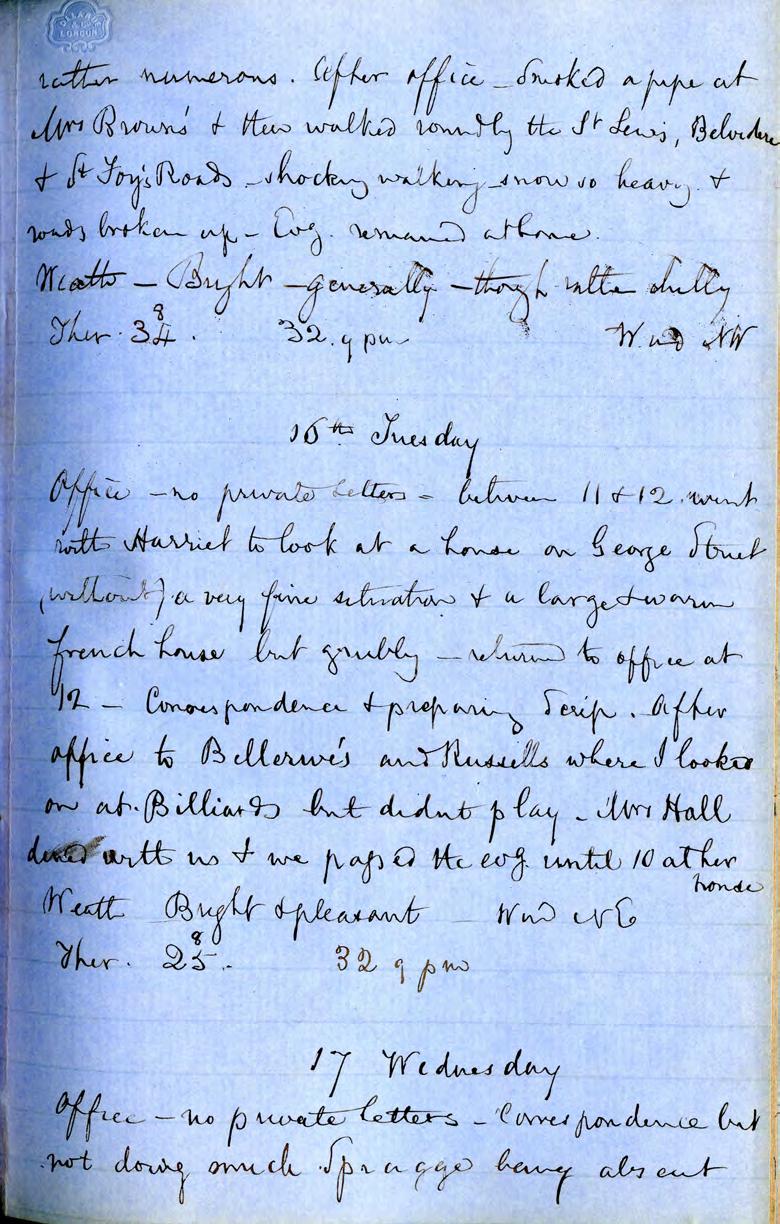 rather numerous. After office – Smoked a pipe at
Mrs Brown's & then walked round by the St Lewis, Belvedere
& St Foy's Roads – shocking walking – snow so heavy &
roads broken up – Evg. remained at home.
Weath – Bright – generally – though rather chilly
Ther. 34 8. 32. 9 pm Wind NW
16th Tuesday
Office – no private letters – between 11 & 12 went
with Harriet to look at a house on George Street
(without) a very fine situation & a large & warm
french house but grubby – returned to office at
12 – Correspondence & preparing Scrip. After
office to Bellerive's and Russells where I looked
on at Billiards but didn't play – Mrs Hall
dined with us & we passed the evg until 10 at her
house
Weath Bright & pleasant Wind NE
Ther. 25 8. 32 9 pm
17 Wednesday
Office – no private letters – Correspondence but
not doing much Spragge being absent